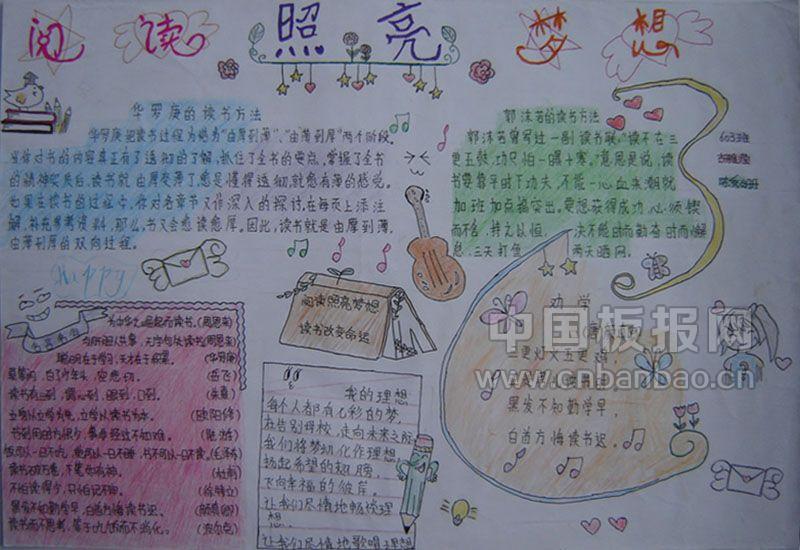 阅读照亮梦想
华罗庚的读书方法
华罗庚把读书过程归结为“由厚到薄”、“由薄到厚”两个阶段。
当你对书的内容真正有了透彻的了解,抓住了全书的要点,掌握了全书
的精神实质后,读书就由厚变薄了,愈是懂得透彻,就愈有薄的感觉。
如果在读书的过程中,你对各章节又作深入的探讨,在每页上添注
解,补充参考资料,那么,书又会愈读愈厚。因此,读书就是由厚到薄,
由薄到厚的双向过程。
Happy
郭沫若的读书方法
郭沫若曾写过一副读书联:“读不在三
更五鼓,功只怕一曝十寒。”意思是说,读
书要靠平时下功夫,不能一心血来潮就
加班加点搞突击。要想获得成功,心须锲
而不舍,持之以恒,决不能时而勤奋时而懈
息,三天打鱼,两天晒网。
603班
名言名句
为中华之崛起而读书。(周恩来)
聪明在于学习,天才在于积累。(华罗庚)
莫等闲,白了少年头,空悲切。(岳飞)
读书有三到,谓心到,眼到,口到。(朱熹)
立身以立学为先,立学以读书为本。(欧阳修)
书到用时方恨少,事非经过不知难。(陆游)
饭可以一日不吃,觉可以一日不睡,书不可以一日不读。(毛泽东)
(杜甫)
不怕读得少,只怕记不牢。(徐特立)
黑发不知勤学早,白首方悔读书迟。(颜真卿)
(波尔克)
阅读照亮梦想
读书改变命运
我的理想
每个人都有七彩的梦,
在告别母校,走向未来之际
我们将梦幻化作理想
扬起希望的翅膀,
飞向幸福的彼岸。
让我们尽情地畅谈理
想,
让我们尽情地歌唱理想
劝学
三更灯火五更鸡
正是男儿读书时
黑发不知勤学早,
白首方悔读书迟。
中国板报网
www.cnbanbao.cn